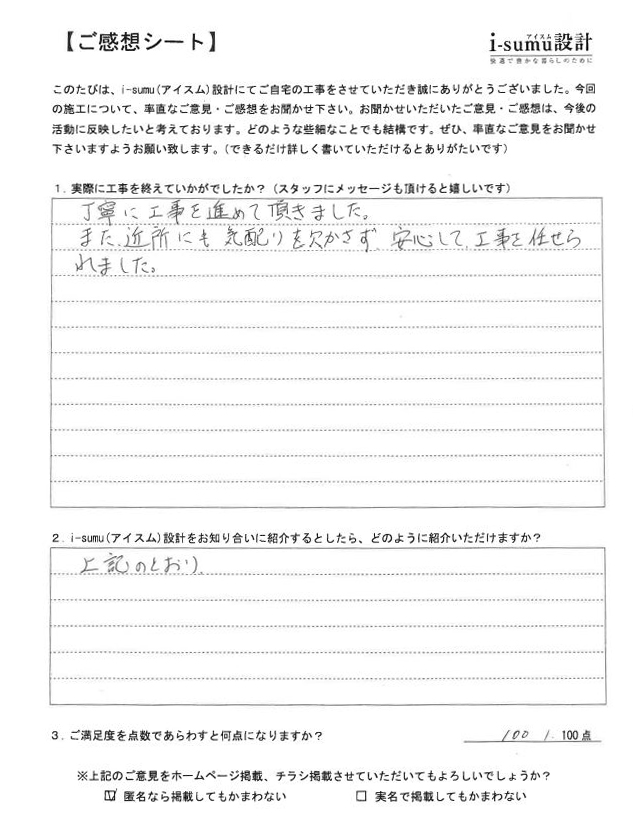 【ご感想シート】
アイスム
i-sumu設計
快適で豊かな暮らしのために
このたびは、i-sumu(アイスム)設計にてご自宅の工事をさせていただき誠にありがとうございました。今回
の施工について、率直なご意見・ご感想をお聞かせ下さい。お聞かせいただいたご意見・ご感想は、今後の
活動に反映したいと考えております。どのような些細なことでも結構です。ぜひ、率直なご意見をお聞かせ
下さいますようお願い致します。(できるだけ詳しく書いていただけるとありがたいです)
1. 実際に工事を終えていかがでしたか？(スタッフにメッセージも頂けると嬉しいです)
丁寧に工事を進めて頂きました。
また、近所にも気配りを欠かさず、安心して、工事を任せら
れました。
2. i-sumu(アイスム)設計をお知り合いに紹介するとしたら、どのように紹介いただけますか？
上記のとおり、
3. ご満足度を点数であらわすと何点になりますか？
100 /. 100点
※上記のご意見をホームページ掲載、チラシ掲載させていただいてもよろしいでしょうか？
☑ 匿名なら掲載してもかまわない □ 実名で掲載してもかまわない